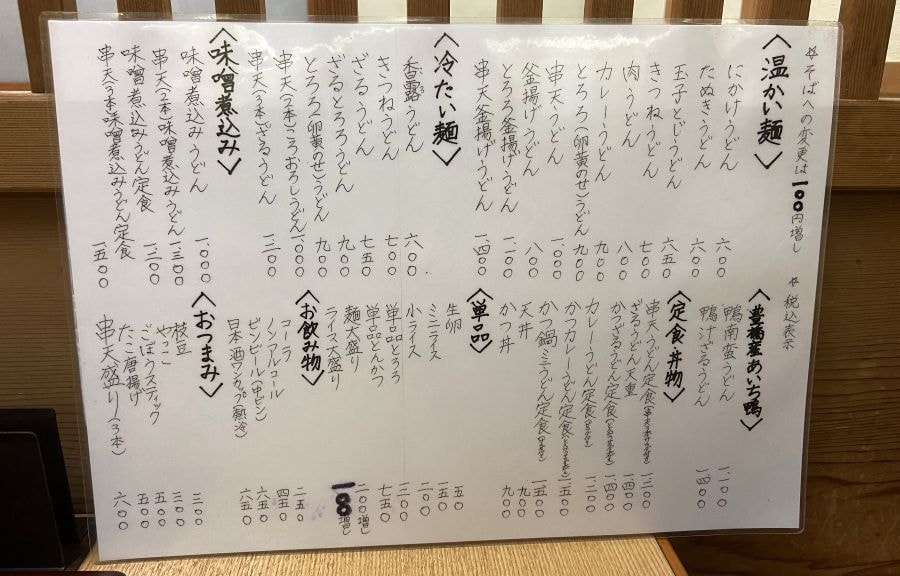 ☆そばへの変更は一〇〇円増し ☆税込表示
〈温かい麺〉
にかけうどん 六〇〇
たぬきうどん 六〇〇
玉子とじうどん 六五〇
きつねうどん 七〇〇
肉うどん 八〇〇
カレーうどん 九〇〇
とろろ(卵黄のせ)うどん 九〇〇
串天うどん 一,〇〇〇
釜揚げうどん 八〇〇
とろろ釜揚げうどん 一,一〇〇
串天釜揚げうどん 一,四〇〇
〈冷たい麺〉
香露うどん 六〇〇
きつねうどん 七〇〇
ざるうどん 七五〇
ざるとろろうどん 九〇〇
とろろ(卵黄のせ)うどん 九〇〇
串天(2本)ころおろしうどん 一,〇〇〇
串天(3本)ざるうどん 一,二〇〇
〈味噌煮込み〉
味噌煮込みうどん 一,〇〇〇
串天(2本)味噌煮込みうどん 一,三〇〇
味噌煮込みうどん定食 一,三〇〇
串天(3本)味噌煮込みうどん定食 一,五〇〇
〈豊橋産あいち鴨〉
鴨南蛮うどん 一,二〇〇
鴨汁ざるうどん 一,四〇〇
〈定食丼物〉
串天うどん定食 一,二〇〇
ざるうどん天重 一,四〇〇
かつざるうどん定食 一,四〇〇
カレーうどん定食
かつカレーうどん定食 一,五〇〇
かつ鍋(ミニうどん)定食 一,五〇〇
天丼 九〇〇
かつ丼 九〇〇
〈単品〉
生卵 五〇
ミニライス 一五〇
小ライス 二〇〇
単品とろろ 三〇〇
単品とんかつ 七五〇
麺大盛り 二〇〇増し
ライス大盛り 一〇〇増し
〈お飲み物〉
コーラ 二五〇
ノンアルコール 四五〇
ビンビール(中ビン) 六五〇
日本酒ワンカップ(熱冷) 六五〇
〈おつまみ〉
枝豆 三〇〇
やっこ 三〇〇
ごぼうスティック 五〇〇
たこ唐揚げ 五〇〇
串天盛り(3本) 六〇〇